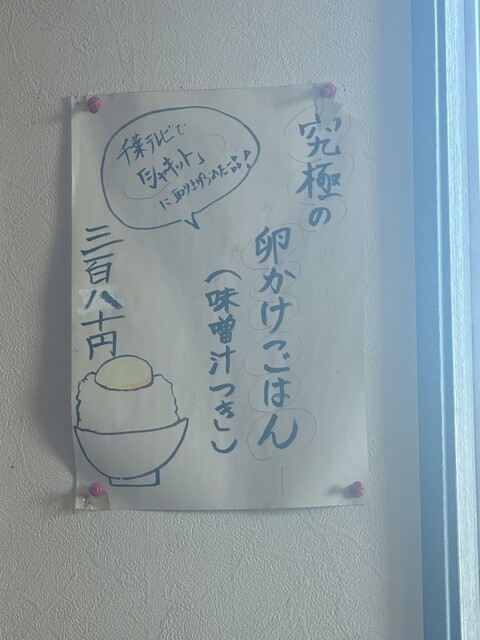 究極の
卵かけごはん
(味噌汁つき)
千葉テレビで
「シャキット」
に取り上げられた一品!
三百八十円